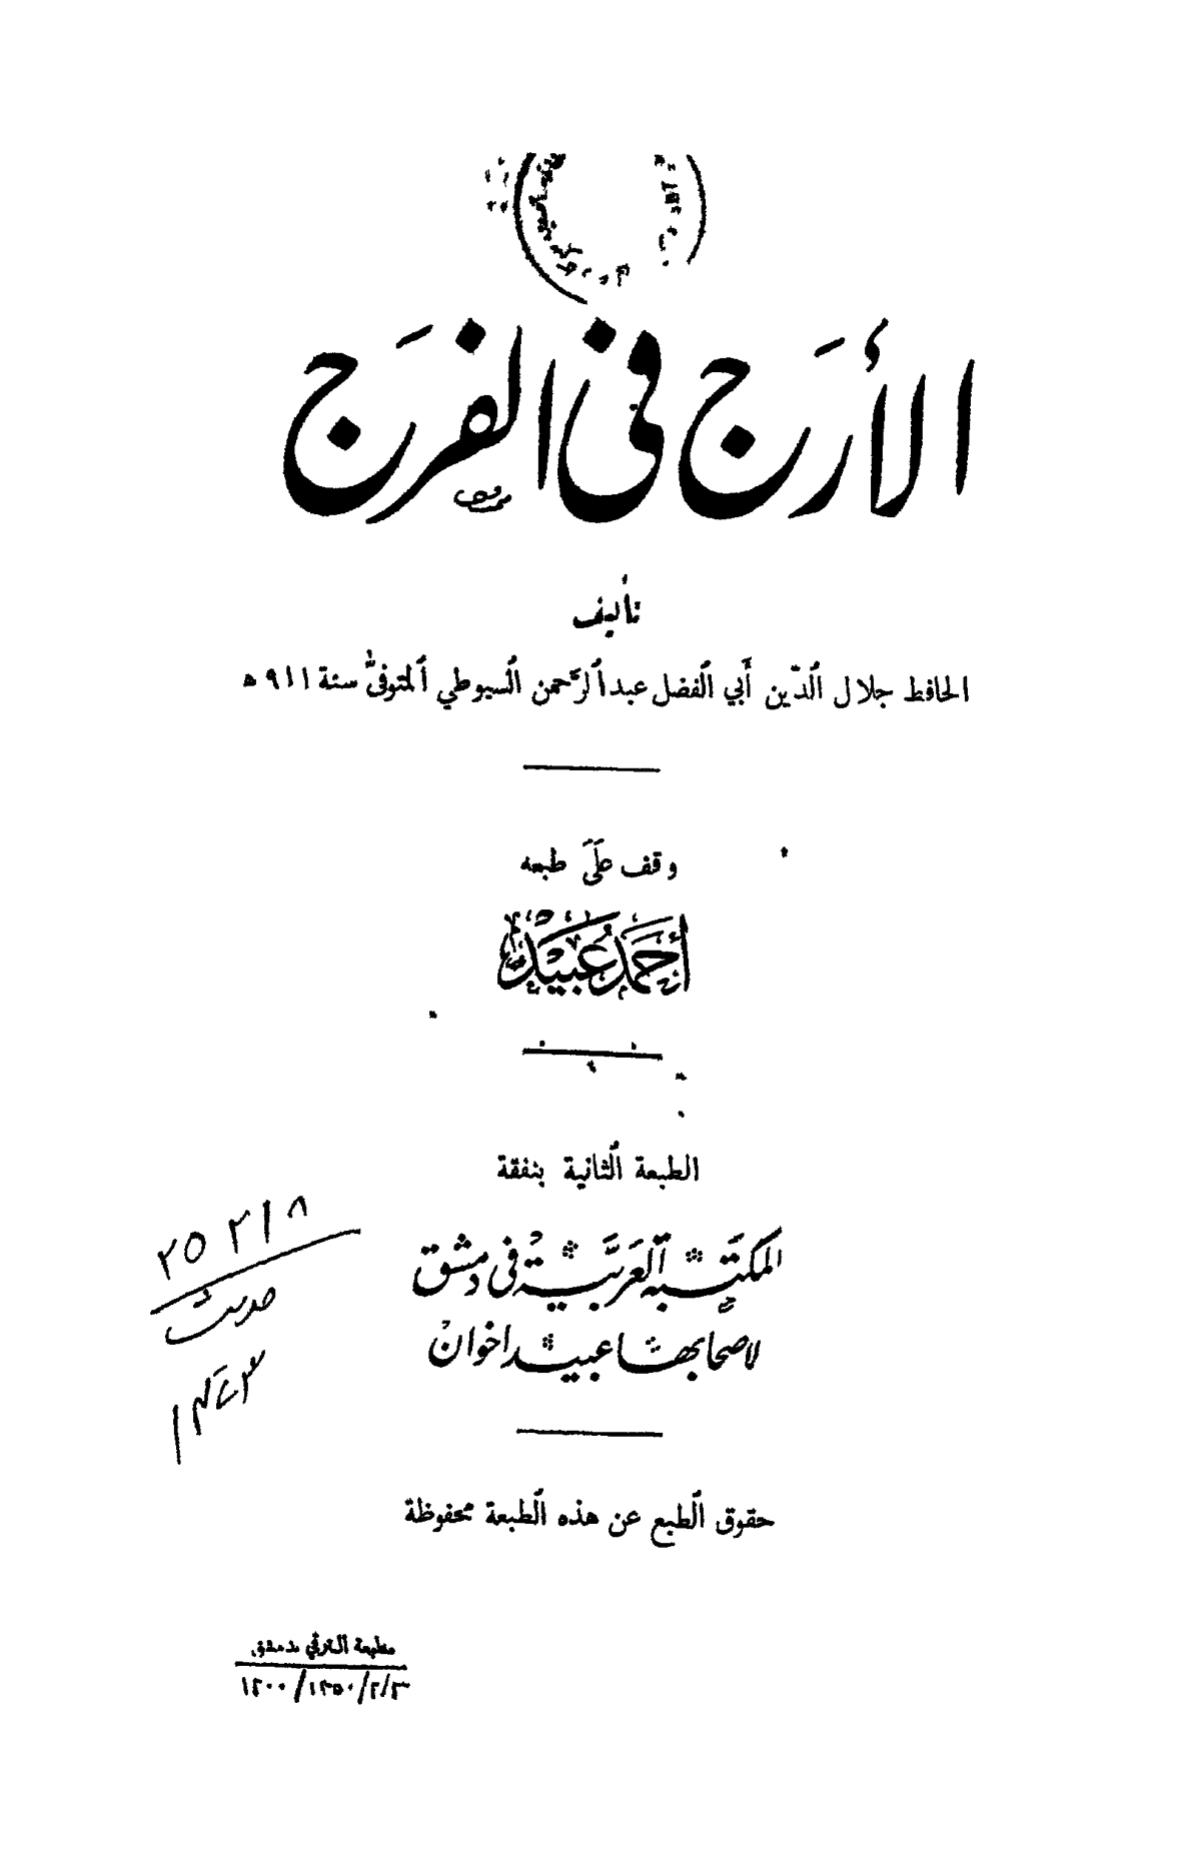 الأَرَج في الفَرَج
تأليف
الحافظ جلال الدّين أبي الفضل عبد الرَّحمن السيوطي المتوفّى سنة ٩١١ ه
وقف عَلَى طبعه
أَحمَد عُبَيْد
الطبعة الثانية بنفقة
المكتَبة العَربيَّة في دمشق
لاصحابها عبيد اخوان
٢٥٢١٨
حديث
حقوق الطبع عن هذه الطبعة محفوظة
مطبعة الترقي بدمشق
١٢٠٠/١٣٥٠/٢/٣